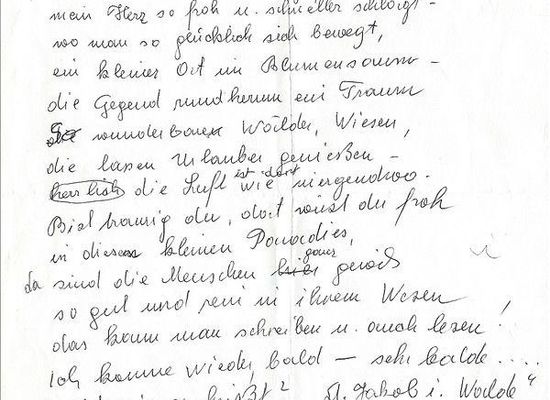 mein Herz so froh u. schneller schlägt -
wo man so glücklich sich bewegt,
ein kleiner Ort im Blumensaum -
die Gegend rundherum ein Traum
wunderbaren Wälder, Wiesen,
die lassen Urlauber genießen -
herrlich die Luft ist dort wie nirgendwo.
Bist traurig du, dort wirst du froh
in diesem kleinen Paradies,
da sind die Menschen ganz gewiß
so gut und rein in ihrem Wesen
das kann man schreiben u. auch lesen!
Ich komme wieder, bald — sehr balde....
heißt? "St. Jakob i. Walde"